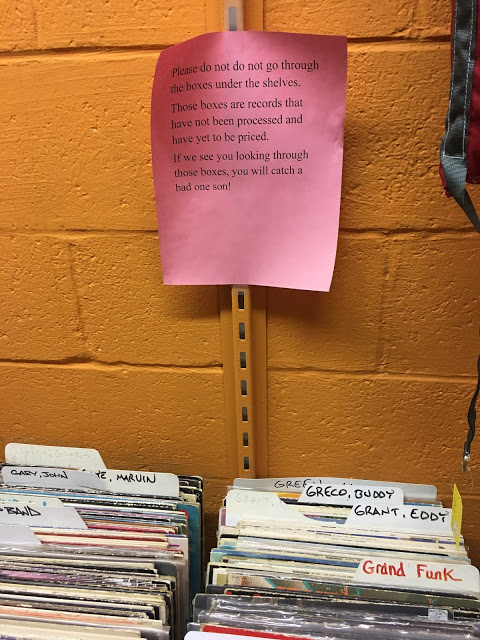 Please do not do not go through
the boxes under the shelves.
Those boxes are records that
have not been processed and
have yet to be priced.
If we see you looking through
those boxes, you will catch a
bad one son!
GARY, JOHN
MARVIN
BAND
GRECO, BUDDY
GRANT, EDDY
GRAND FUNK